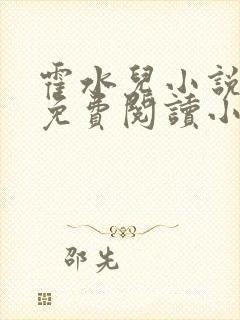 霍水兒小說
免費閱讀小
邵先